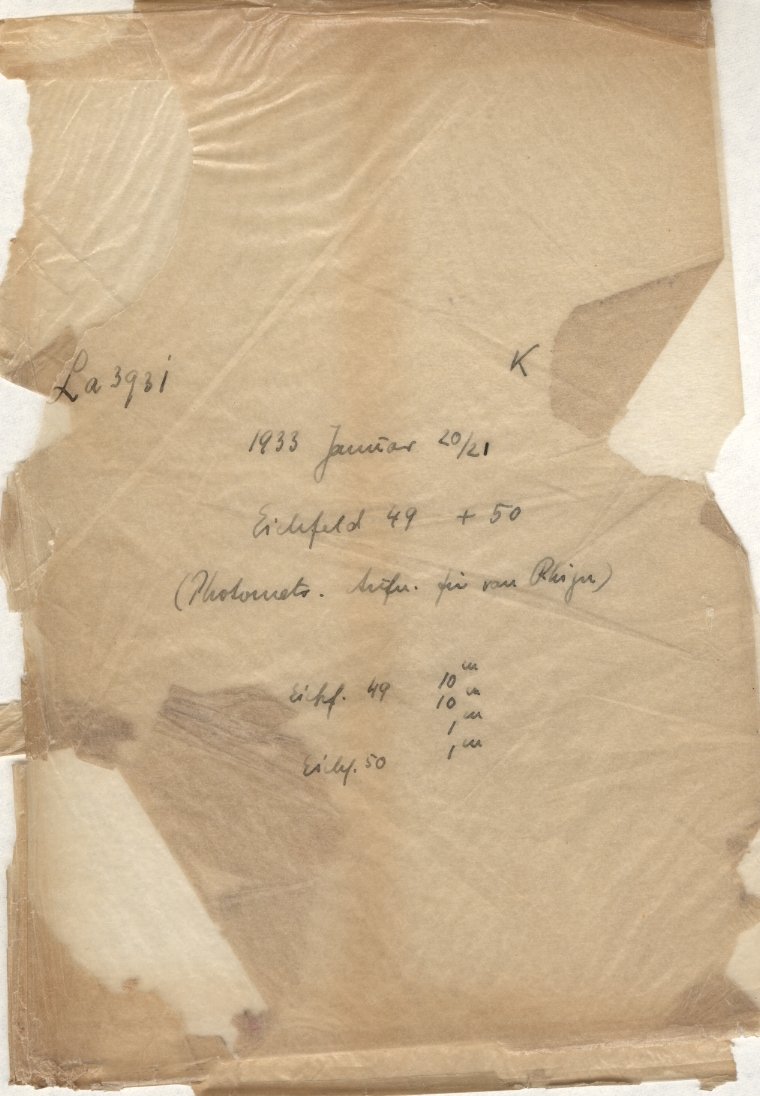 La 3931 K
1933 Januar 20/21
Eichfeld 49 + 50
(Photometr. Aufn. für van Rhijn)
Eichf. 49 10ᵐ
10ᵐ
1ᵐ
Eichf. 50 1ᵐ